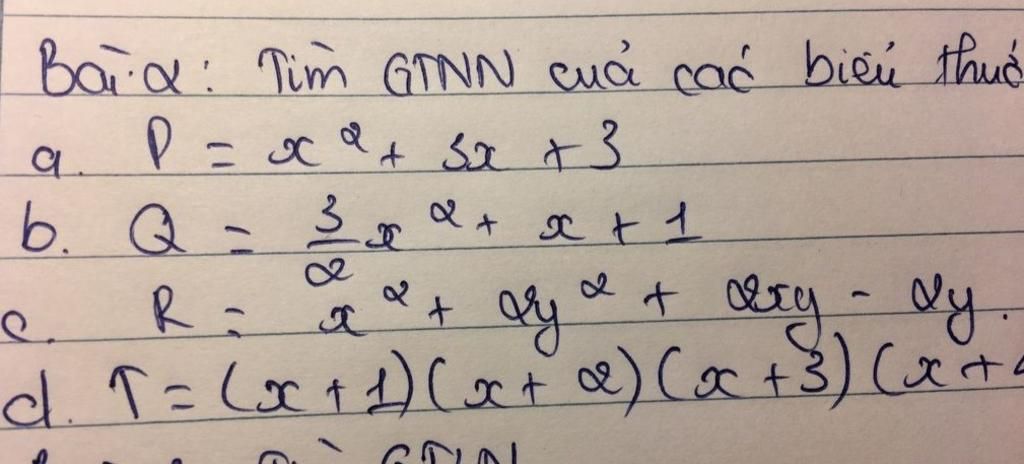 Bài 2: Tìm GTNN của các biểu thứ
a. P = x² + 3x + 3
b. Q = 3/2 x² + x + 1
c. R = x² + 2y² + 2xy - 2y.
d. T = (x + 1)(x + 2)(x + 3)(x +
GTNN